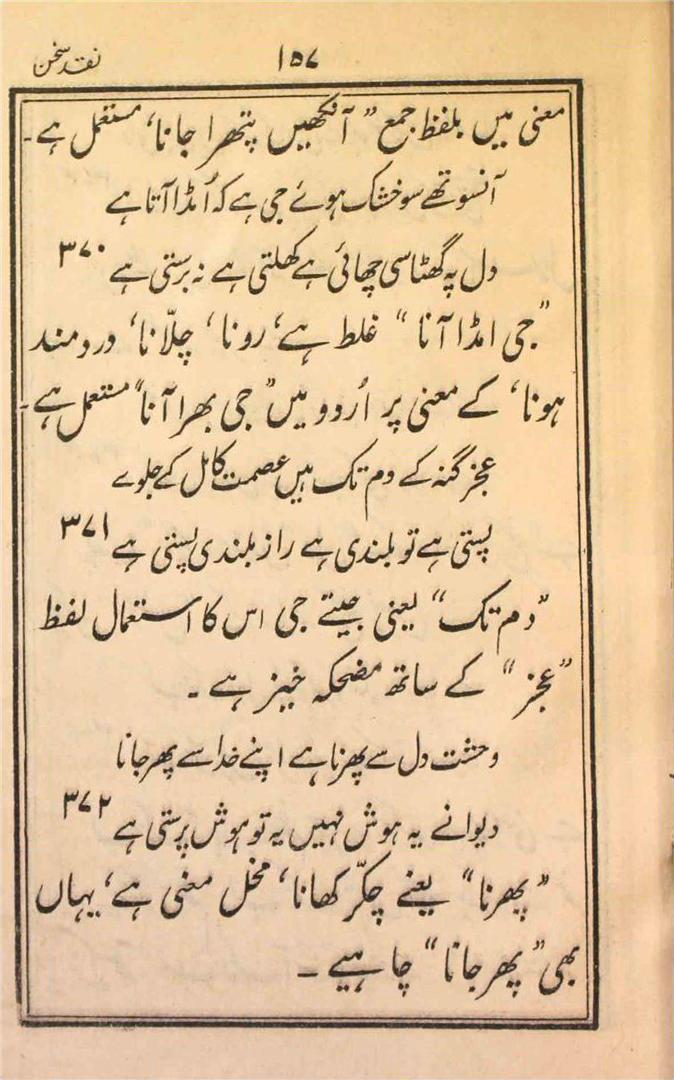 نقد سخن
۱۵۷
معنی میں بلفظ جمع ”آنکھیں پتھرا جانا‘ مستعمل ہے۔
آنسو تھے سو خشک ہوئے جی ہے کہ اُمڈا آتا ہے
دل پہ گھٹا سی چھائی ہے کھلتی ہے نہ برستی ہے ۳۷۰
”جی امڈا آنا“ غلط ہے‘ رونا‘ چلّانا‘ دردمند
ہونا‘ کے معنی پر اُردو میں ”جی بھرا آنا“ مستعمل ہے۔
عجز گنہ کے دم تک ہیں عصمت کامل کے جلوے
پستی ہے تو بلندی ہے راز بلندی پستی ہے ۳۷۱
”دم تک“ یعنی جیتے جی اس کا استعمال لفظ
”عجز“ کے ساتھ مضحکہ خیز ہے۔
وحشت دل سے پھرنا ہے اپنے خدا سے پھر جانا
دیوانے یہ ہوش نہیں یہ تو ہوش پرستی ہے ۳۷۲
”پھرنا“ یعنے چکّر کھانا‘ مخل معنی ہے‘ یہاں
بھی ”پھر جانا“ چاہیے۔